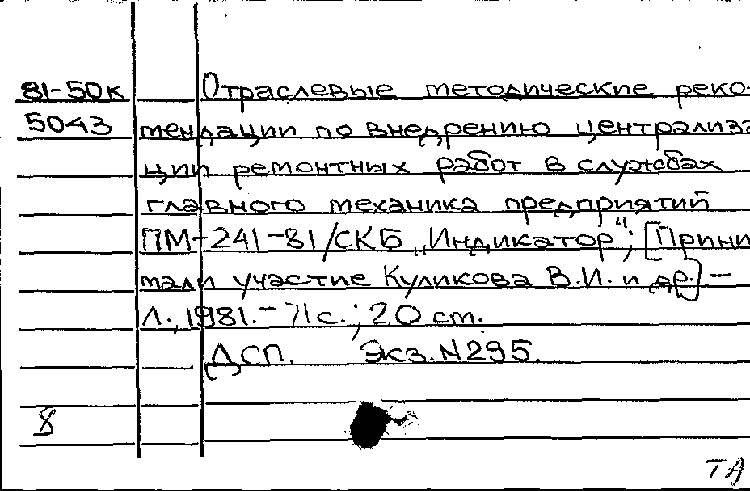 81-50к Отраслевые методические реко-
5043 мендации по внедрению централиза
ции ремонтных работ в службах
главного механика предприятий
ПМ-241-81/СКБ „Индикатор"; [Прини
мали участие Куликова В.И. и др.] —
Л., 1981. - 71с.; 20 см.
ДСП. Экз. N295.
8
ТА